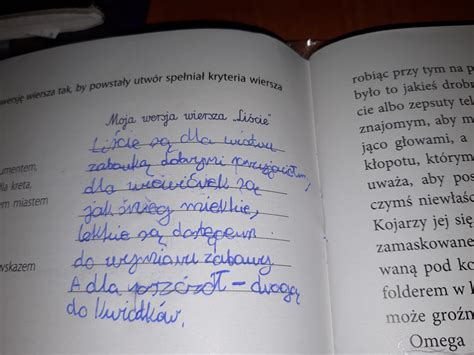 wersję wiersza tak, by powstały utwór spełniał kryteria wiersza
Moja wersja wiersza „Liście”
Liście są dla wiatru
zabawką dobrymi
dla wiewiórek są
jak śnieg mielkie,
lekkie są
do wymiaru zabawy
A dla pszczół – drogą
do kwiatków.
umentem,
dla kreta,
em miastem
wskazem
robiąc przy tym na p
było to jakieś drob
cie albo zepsuty te
znajomym, aby m
jąco głowami, a
kłopotu, którym
uważa, aby pos
czymś niewłaśc
Kojarzy jej się
zamaskowane
waną pod ko
folderem w k
może groźn
Omega